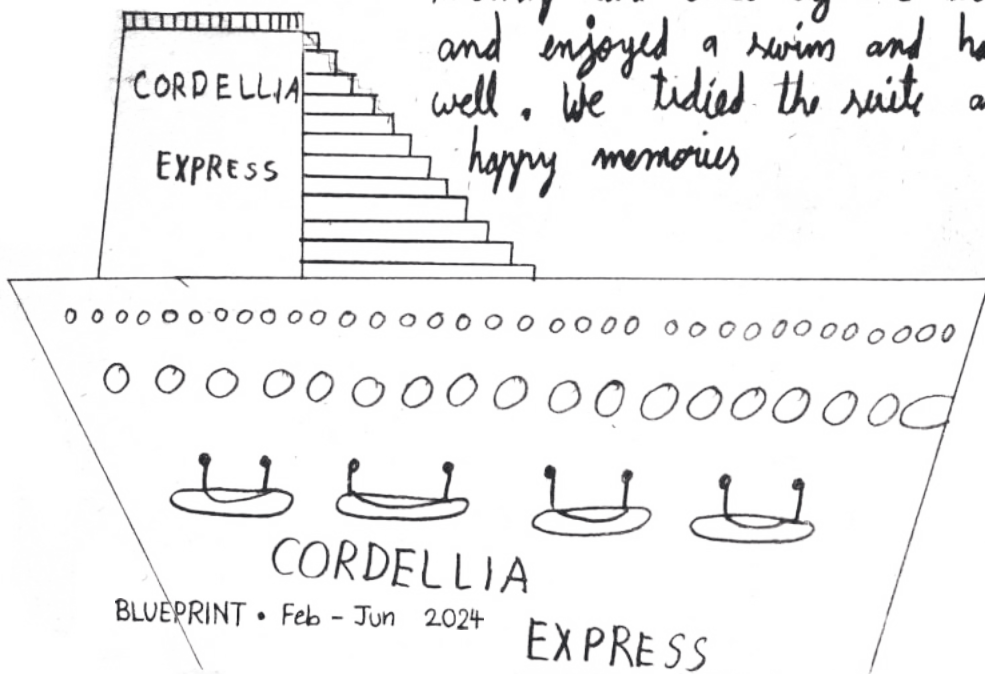 and enjoyed a swim and
well. We tidied the suite
happy memories
CORDELLIA
EXPRESS
CORDELLIA
BLUEPRINT • Feb - Jun 2024
EXPRESS